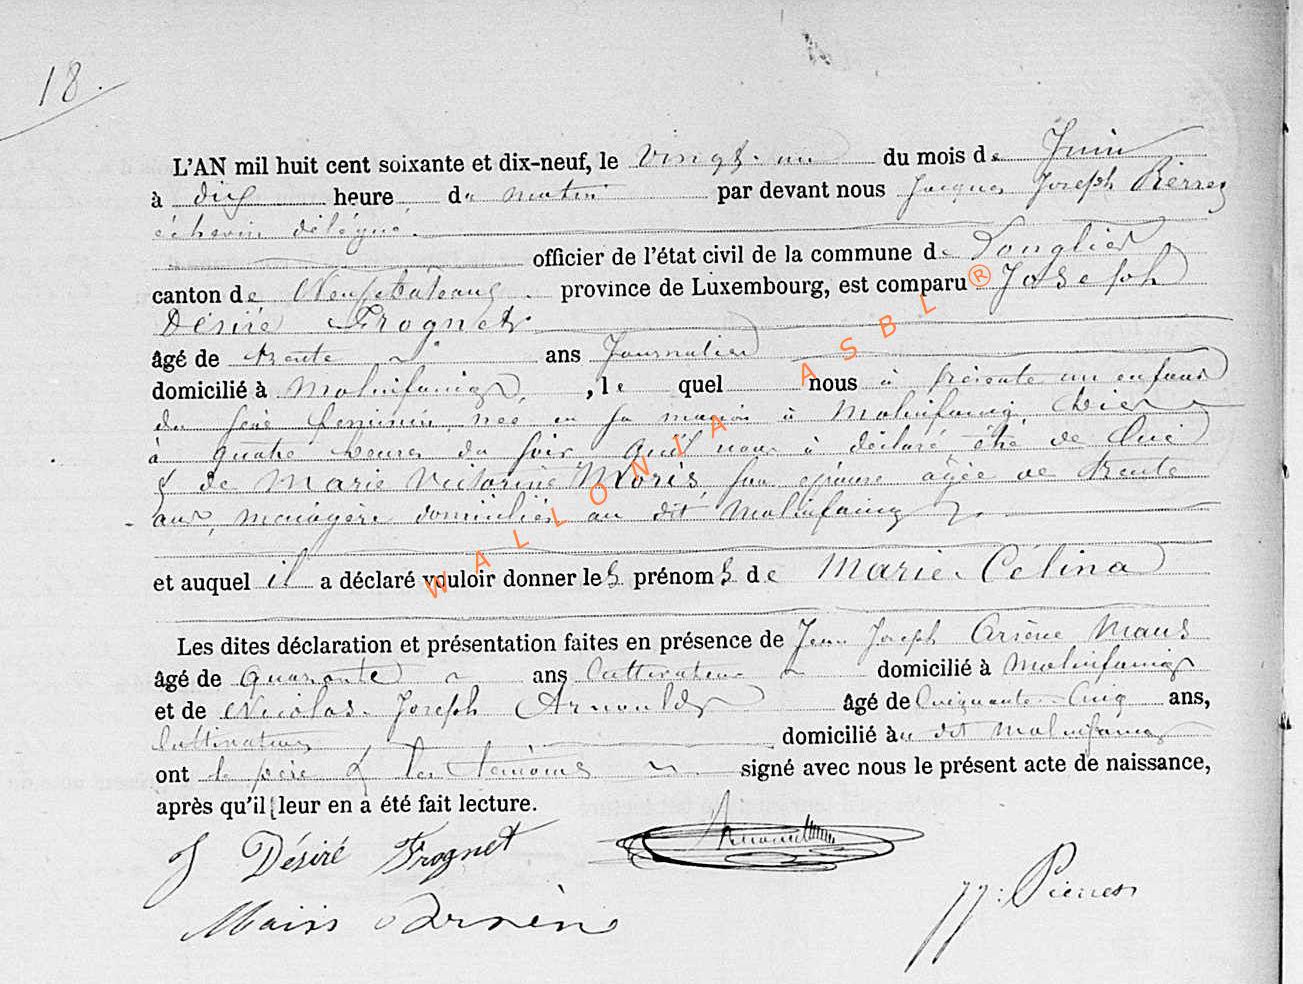 18.
L'AN mil huit cent soixante et dix-neuf, le vingt-un du mois de Juin
à dix heure du matin par devant nous Jacques Joseph Pierret
échevin délégué.
officier de l'état civil de la commune de Longlier
canton de Neufchâteau province de Luxembourg, est comparu Joseph
Désiré Frognet
âgé de trente ans Journalier
domicilié à Molinfaing, le quel nous à présenté un enfant
du sexe feminin, née en sa maison à Molinfaing hier
à quatre heures du soir qu'il nous à déclaré être de lui
& de Marie Victorine Moris son épouse agée de trente
ans, menagère domiciliés au dit Molinfaing
et auquel il a déclaré vouloir donner les prénoms de Marie-Célina
Les dites déclaration et présentation faites en présence de Jean Joseph Arsène Maus
âgé de quarante ans Cultivateur domicilié à Molinfaing
et de Nicolas-Joseph Arnould âgé de Cinquante-Cinq ans,
Cultivateur domicilié au dit Molinfaing
ont le père & les témoins signé avec nous le présent acte de naissance,
après qu'il leur en a été fait lecture.
J Désiré Frognet Arnould
Arsène
JJ: Pierret
WALLONIA ASBL®